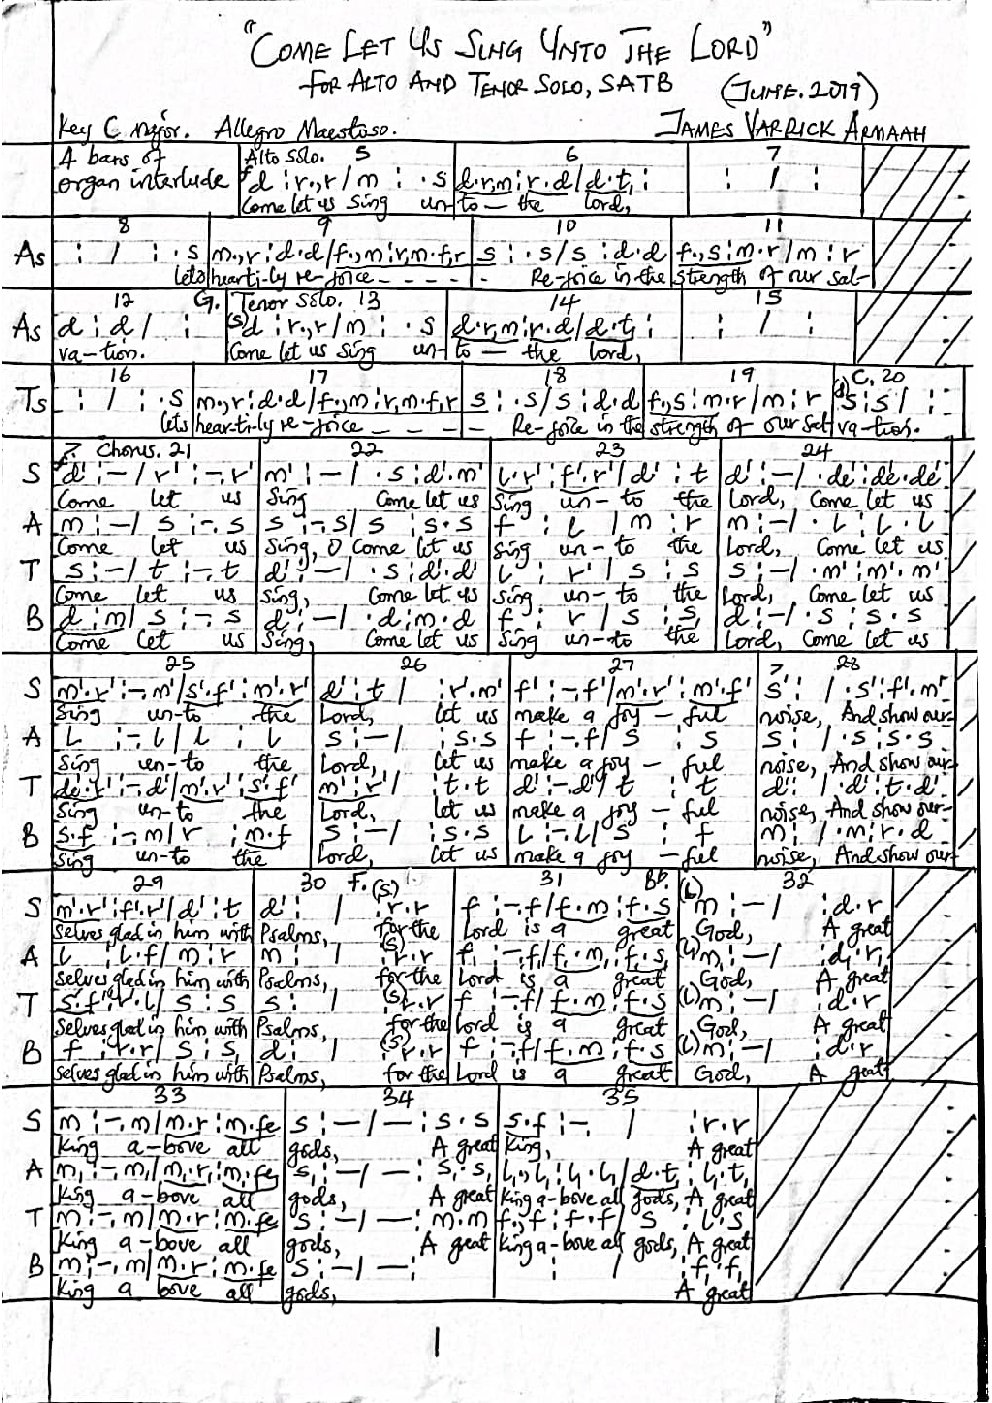 "COME LET US SING UNTO THE LORD"
FOR ALTO AND TENOR SOLO, SATB (JUNE. 2019)
Key C Major. Allegro Maestoso. JAMES VARRICK ARMAAH
4 bars of Alto Solo. 5 6 7
organ interlude d : r.,r / m : . s d.r,m : r.d / d.t, : : / :
Come let us Sing un-to — the Lord,
8 9 10 11
As : / : . s m.,r : d.d / f.,m : r,m.f,r s : . s / s : d.d f.,s : m.r / m : r
lets hear-ti-ly re-joice - - - - - Re-joice in the strength of our sal-
12 G. Tenor Solo. 13 14 15
As d : d / : (s)d : r.,r / m : . s d.r,m : r.d / d.t, : : / :
va-tion. Come let us sing un-to — the Lord,
16 17 18 19 C. 20
Ts : / : . s m.,r : d.d / f.,m : r,m.f,r s : . s / s : d.d f.,s : m.r / m : r s : s / :
lets hear-ti-ly re-joice - - - - - Re-joice in the strength of our Sal va-tion.
Chorus. 21 22 23 24
S d' : – / r' : –. r' m' : – / . s : d'. m' l. r' : f'. r' / d' : t d' : – / . de' : de'. de'
Come let us Sing Come let us Sing un-to the Lord, Come let us
A m : – / s : –. s s : –. s / s : s. s f : l / m : r m : – / . l : l. l
Come let us Sing, O come let us sing un-to the Lord, Come let us
T s : – / t : –. t d' : – / . s : d'. d' l : r' / s : s s : – / . m' : m'. m'
Come let us Sing, Come let us sing un-to the Lord, Come let us
B d : m / s : –. s d : – / . d : m. d f : r / s : s, d : – / . s : s. s
Come let us Sing, Come let us Sing un-to the Lord, Come let us
25 26 27 28
S m'. r' : –. m' / s'. f' : m'. r' d' : t / : r'. m' f' : –. f' / m'. r' : m'. f' s' : / . s' : f'. m'
Sing un-to the Lord, let us make a joy – ful noise, And show our-
A l : –. l / l : l s : – / : s. s f : –. f / s : s s : / . s : s. s
Sing un-to the Lord, let us make a joy – ful noise, And show our-
T de'. t : –. d' / m'. r' : s'. f' m'. r' / : t. t d' : –. d' / t : t d' : / . d' : t. d'
Sing un-to the Lord, let us make a joy – ful noise, And show our-
B s. f : –. m / r : m. f s : – / : s. s l : –. l / s : f m : / . m : r. d
Sing un-to the Lord, let us make a joy – ful noise, And show our-
29 30 F. 31 Bb. 32
S m'. r' : f'. r' / d' : t d' : / (s) : r. r f : –. f / f. m : f. s (l)m : – / : d. r
Selves glad in him with Psalms, for the Lord is a great God, A great
A l : l. f / m : r m : / (s) : r. r f, : –. f, / f,. m, : f,. s, (l)m, : – / : d,. r,
Selves glad in him with Psalms, for the Lord is a great God, A great
T s. f : l. l / s : s s : / (s) : r. r f : –. f / f. m : f. s (l)m : – / : d. r
Selves glad in him with Psalms, for the Lord is a great God, A great
B f : r. r / s : s, d : / (s) : r. r f : –. f / f. m : f. s (l)m : – / : d. r
Selves glad in him with Psalms, for the Lord is a great God, A great
33 34 35
S m : –. m / m. r : m. fe s : – / – : s. s s. f : –. / : r. r
King a-bove all gods, A great King, A great
A m, : –. m, / m,. r, : m,. fe s, : – / – : s,. s, l,., l, : l,. l, / d. t, : l,. t,
King a-bove all gods, A great King a-bove all gods, A great
T m : –. m / m. r : m. fe s : – / – : m. m f., f : f. f / s : l. s
King a-bove all gods, A great King a-bove all gods, A great
B m : –. m / m. r : m. fe s : – / – : : / : f,. f,
King a bove all gods, A great
1